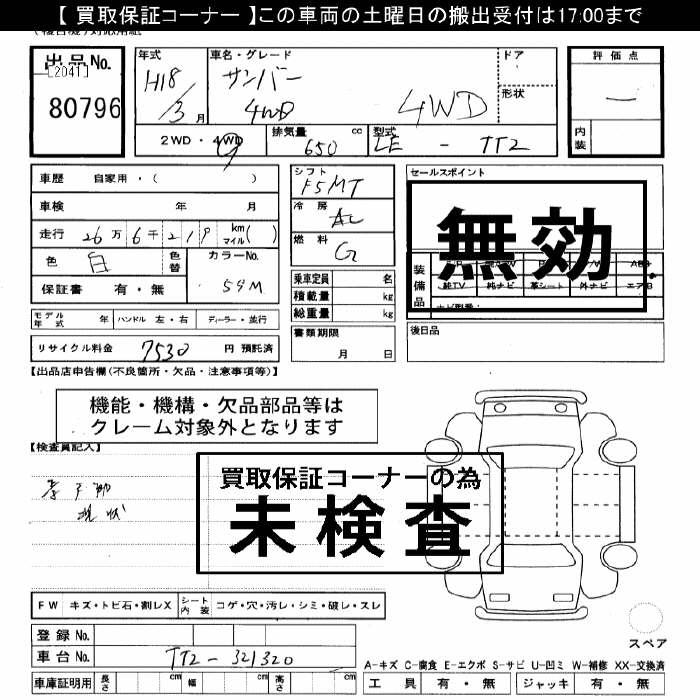 【 買取保証コーナー 】この車両の土曜日の搬出受付は17:00まで
出品No.
[2041]
80796
年式
H18
3月
車名・グレード
サンバー
4WD
4WD
ドア
形状
評価点
内装
2WD・4WD
排気量 650 cc
型式 LE - TT2
車歴 自家用・( )
車検 年 月
走行 26万6千219 km マイル( )
色 白 色替
カラーNo. 59M
保証書 有・無
シフト F5MT
冷房 AC
燃料 G
乗車定員 名
積載量 kg
総重量 kg
セールスポイント
無効
装備品
純TV 純ナビ 革シート 外ナビ エアB
モデル年式 年
ハンドル 左・右
ディーラー・並行
書類期限
月 日
後日品
リサイクル料金 7530 円 預託済
【出品店申告欄(不良箇所・欠品・注意事項等)】
機能・機構・欠品部品等は
クレーム対象外となります
【検査員記入】
現状
買取保証コーナーの為
未検査
FW キズ・トビ石・割レX
シート内装 コゲ・穴・汚レ・シミ・破レ・スレ
登録No.
車台No. TT2-321320
車庫証明用 長さ cm 幅 cm 高さ cm
スペア
A-キズ C-腐食 E-エクボ S-サビ U-凹ミ W-補修 XX-交換済
工具 有・無 ジャッキ 有・無